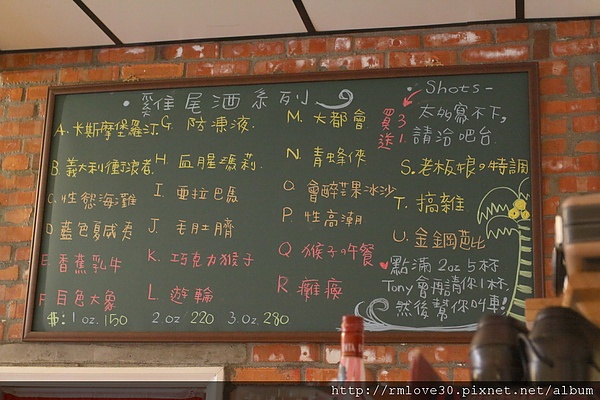 ·雞尾酒系列
A. 卡斯摩堡羅汀
B. 義大利衝浪者
C. 性慾海灘
D. 藍色夏威夷
E. 香蕉乳牛
F. 白色大象
G. 防凍液.
H. 血腥瑪莉.
I. 亞拉巴馬
J. 毛肚臍
K. 巧克力猴子
L. 遊輪
M. 大都會
N. 青蜂俠
O. 會醉芒果冰沙
P. 性高潮
Q 猴子の午餐
R. 癱瘓
·Shots-
買3送1
太多寫不下,
請洽吧台.
S. 老板娘の特調
T. 搞雜
U. 金鋼芭比
點滿 2oz 5杯
Tony會再請你1杯.
然後幫你叫車!
$: 1oz. 150 2.oz 220 3.oz. 280
http://rmlove30.pixnet.net/album